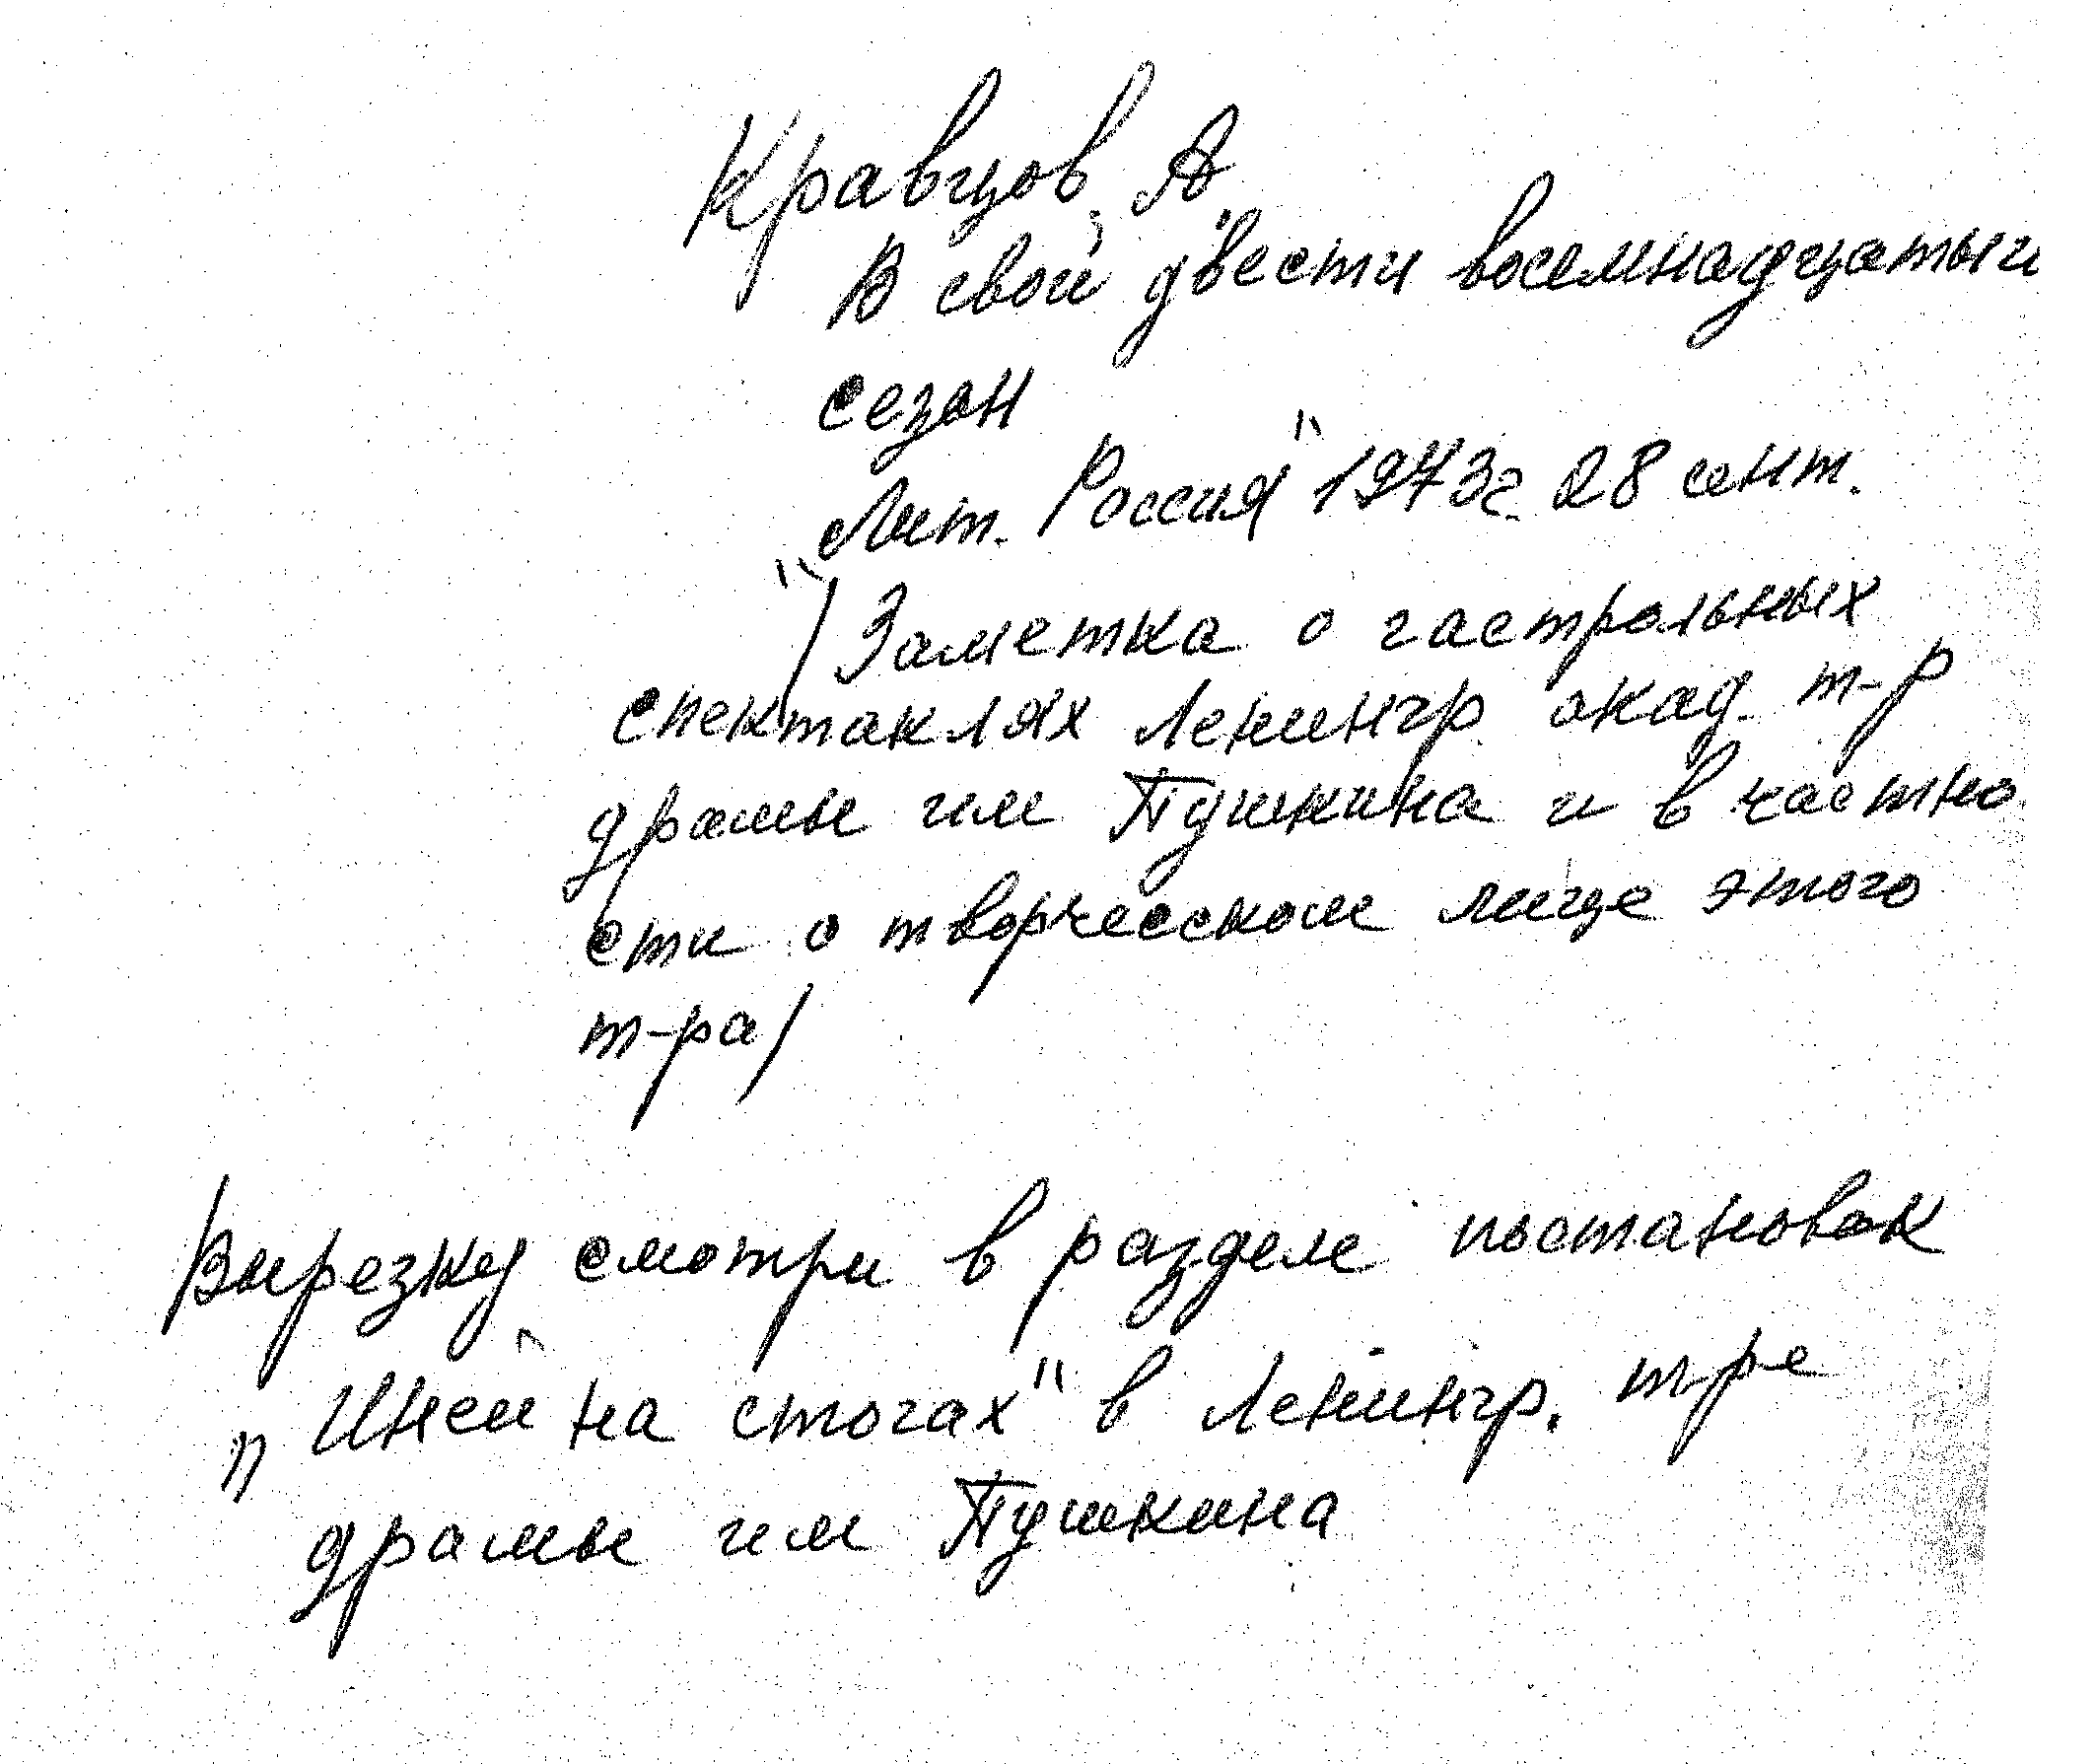 Кравцов, А.
В свой двести восемнадцатый
сезон
"Лит. Россия" 1973г. 28 сент.
/Заметка о гастрольных
спектаклях Ленингр. акад. т-р
драмы им Пушкина и в частно
сти о творческом лице этого
т-ра/
/Вырезку смотри в разделе постановок
„Иней на стогах" в Ленингр. т-ре
драмы им Пушкина